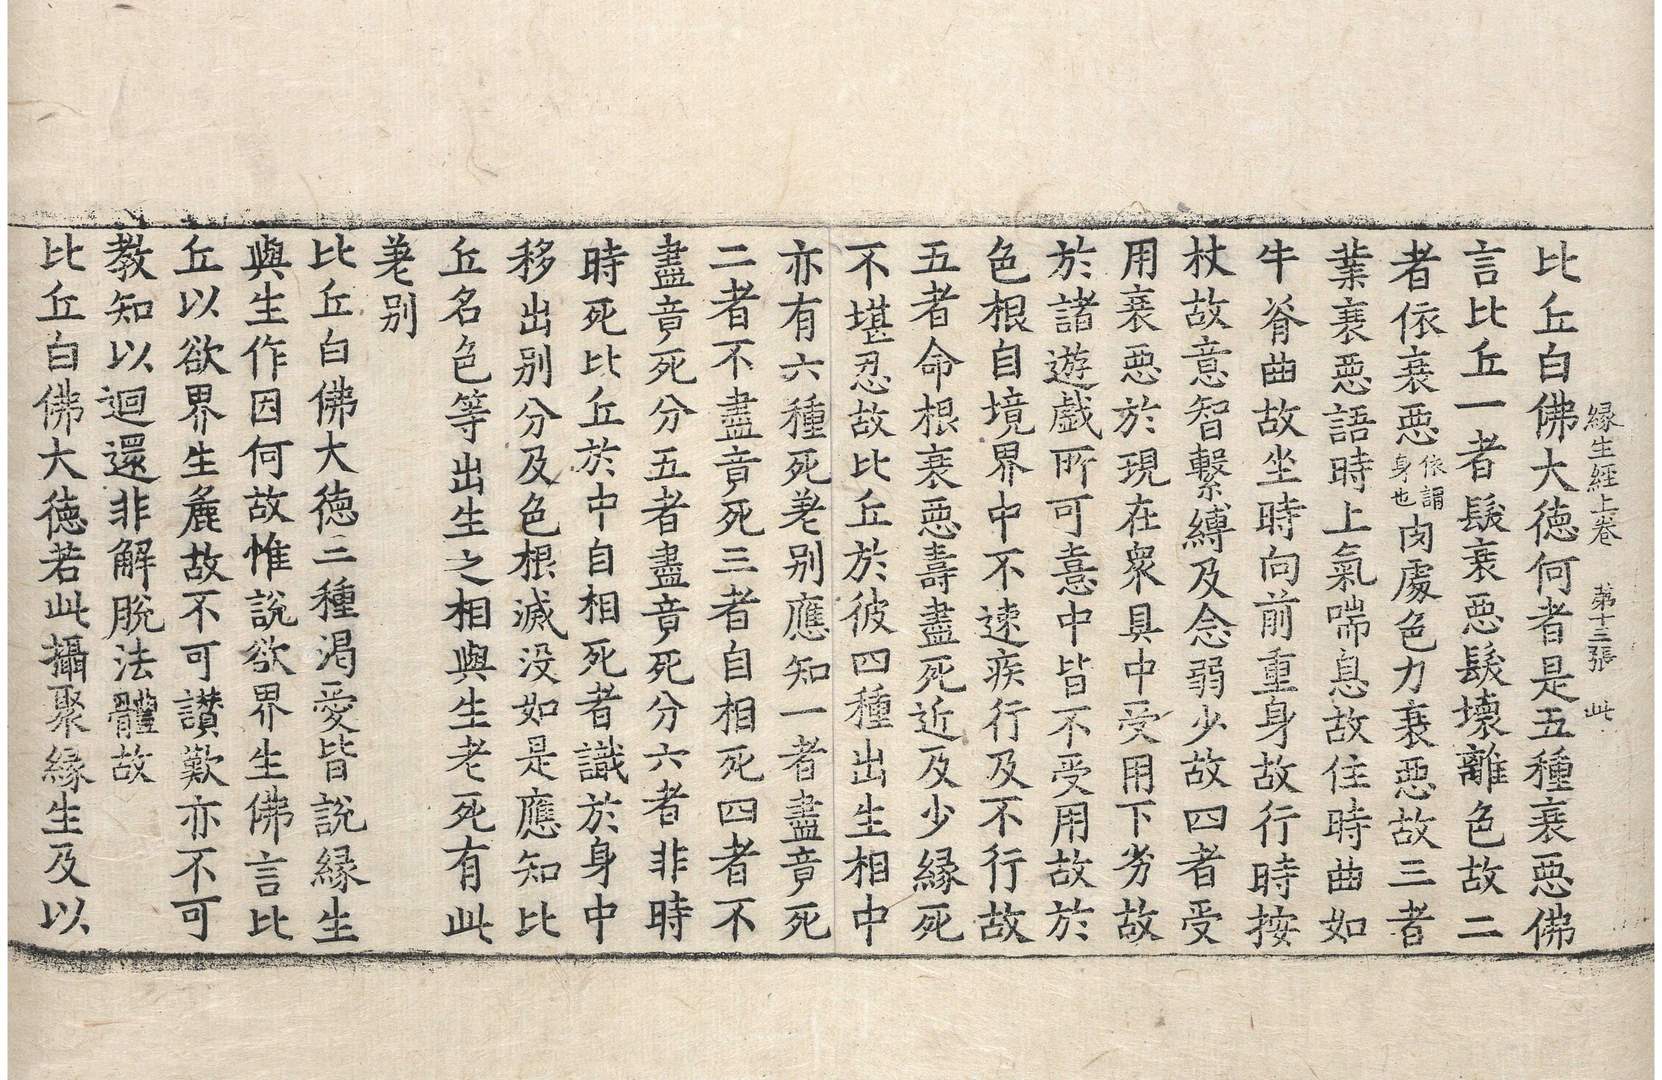 縁生經上卷 第十三張 此
比丘白佛大德何者是五種衰惡佛
言比丘一者髮衰惡髮壞離色故二
者依衰惡依謂身也肉處色力衰惡故三者
葉衰惡語時上氣喘息故住時曲如
牛脊曲故坐時向前重身故行時按
杖故意智繫縛及念弱少故四者受
用衰惡於現在衆具中受用下劣故
於諸遊戲所可憙中皆不受用故於
色根自境界中不速疾行及不行故
五者命根衰惡壽盡死近及少縁死
不堪忍故比丘於彼四種出生相中
亦有六種死差别應知一者盡竟死
二者不盡竟死三者自相死四者不
盡竟死分五者盡竟死分六者非時
時死比丘於中自相死者識於身中
移出别分及色根滅没如是應知比
丘名色等出生之相與生老死有此
差别
比丘白佛大德三種渴愛皆說縁生
與生作因何故惟說欲界生佛言比
丘以欲界生麁故不可讃歎亦不可
教知以迴還非解脫法體故
比丘白佛大德若此攝聚縁生及以